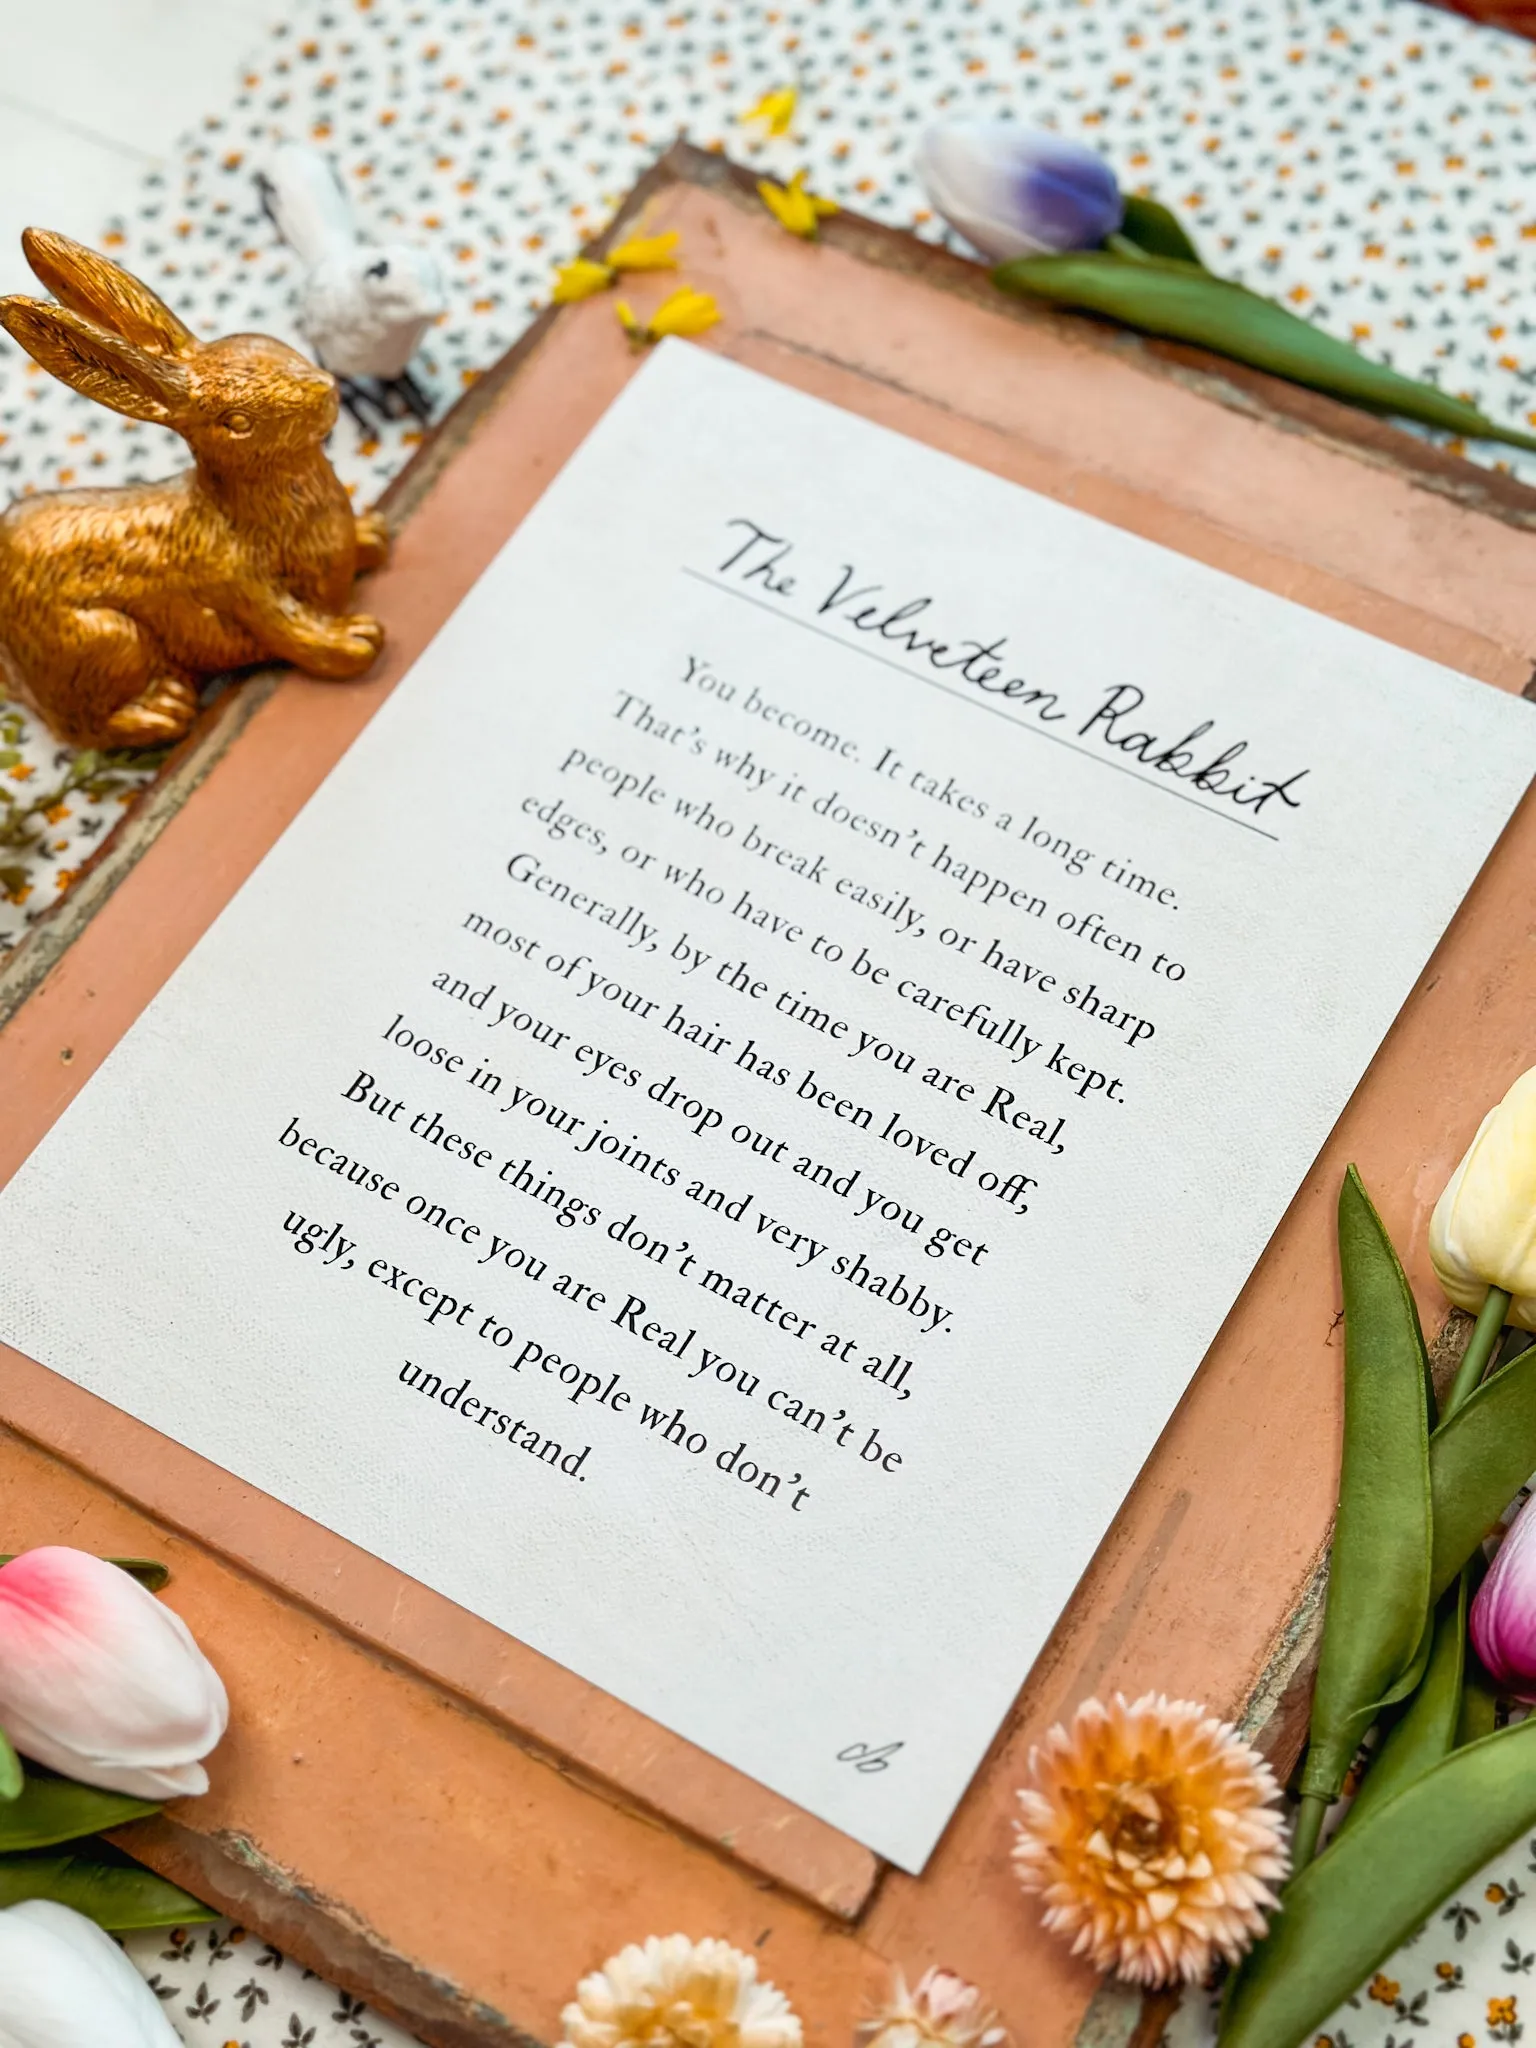 The Velveteen Rabbit
You become. It takes a long time.
That’s why it doesn’t happen often to
people who break easily, or have sharp
edges, or who have to be carefully kept.
Generally, by the time you are Real,
most of your hair has been loved off,
and your eyes drop out and you get
loose in your joints and very shabby.
But these things don’t matter at all,
because once you are Real you can’t be
ugly, except to people who don’t
understand.
cb